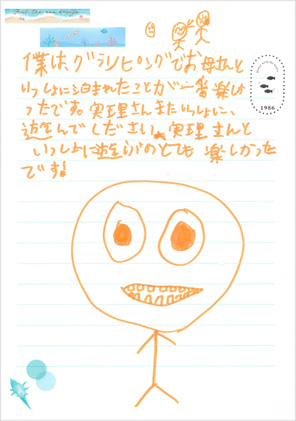 僕はグランピングでお母さんと
いっしょに泊まれたことが一番楽し
かったです。実理さんまたいっしょに、
遊んでください。実理さんと
いっしょに遊ぶのとても楽しかった
です!
1986